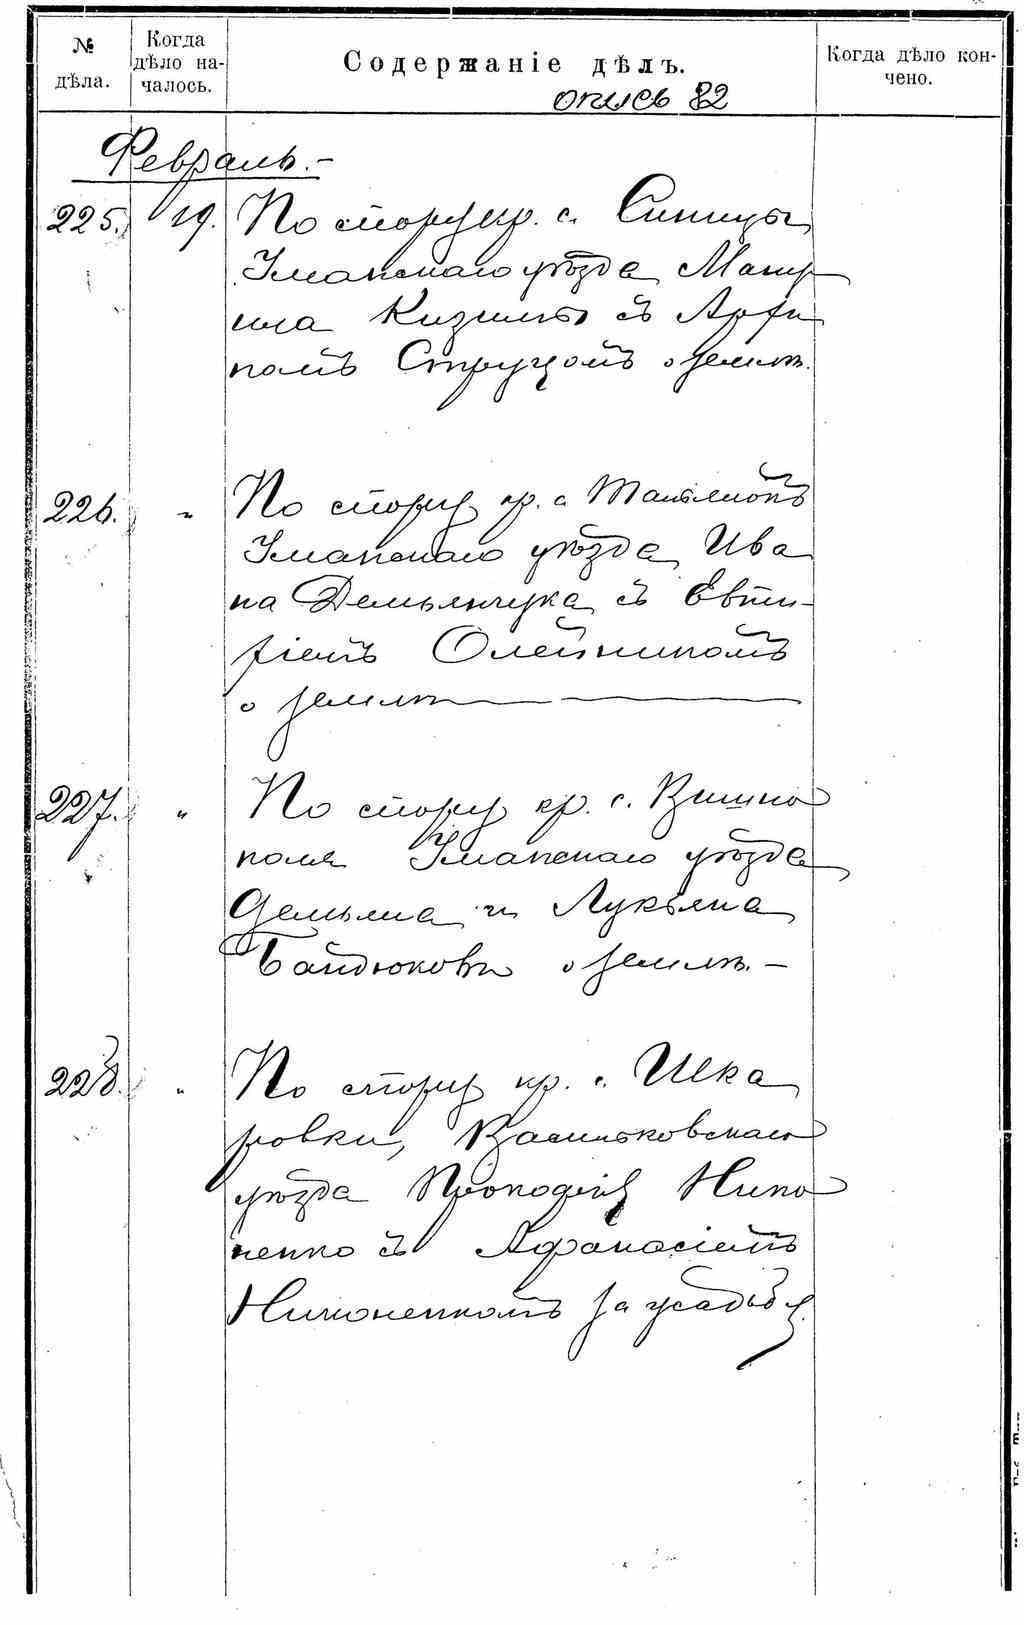 № дѣла.
Когда дѣло на-
чалось.
Содержаніе дѣлъ.
Когда дѣло кон-
чено.
опись 82
Февраль.-
225. 19. По спору кр. с. Синицы
Уманскаго уѣзда
с Арфи
помъ Струцомъ о землѣ.
226. " По спору кр. с.
Уманскаго уѣзда Ива
на Демьянчука съ Евти-
фіемъ Олейникомъ
о землѣ
227. " По спору кр. с. Вишно
поля Уманскаго уѣзда
Демьяна и Лукьяна
Байдюковъ о землѣ.-
228. " По спору кр. с. Шка
ровки, Васильковскаго
уѣзда Нико
ненко съ Афанасіемъ
Никоненкомъ за усадьбу.